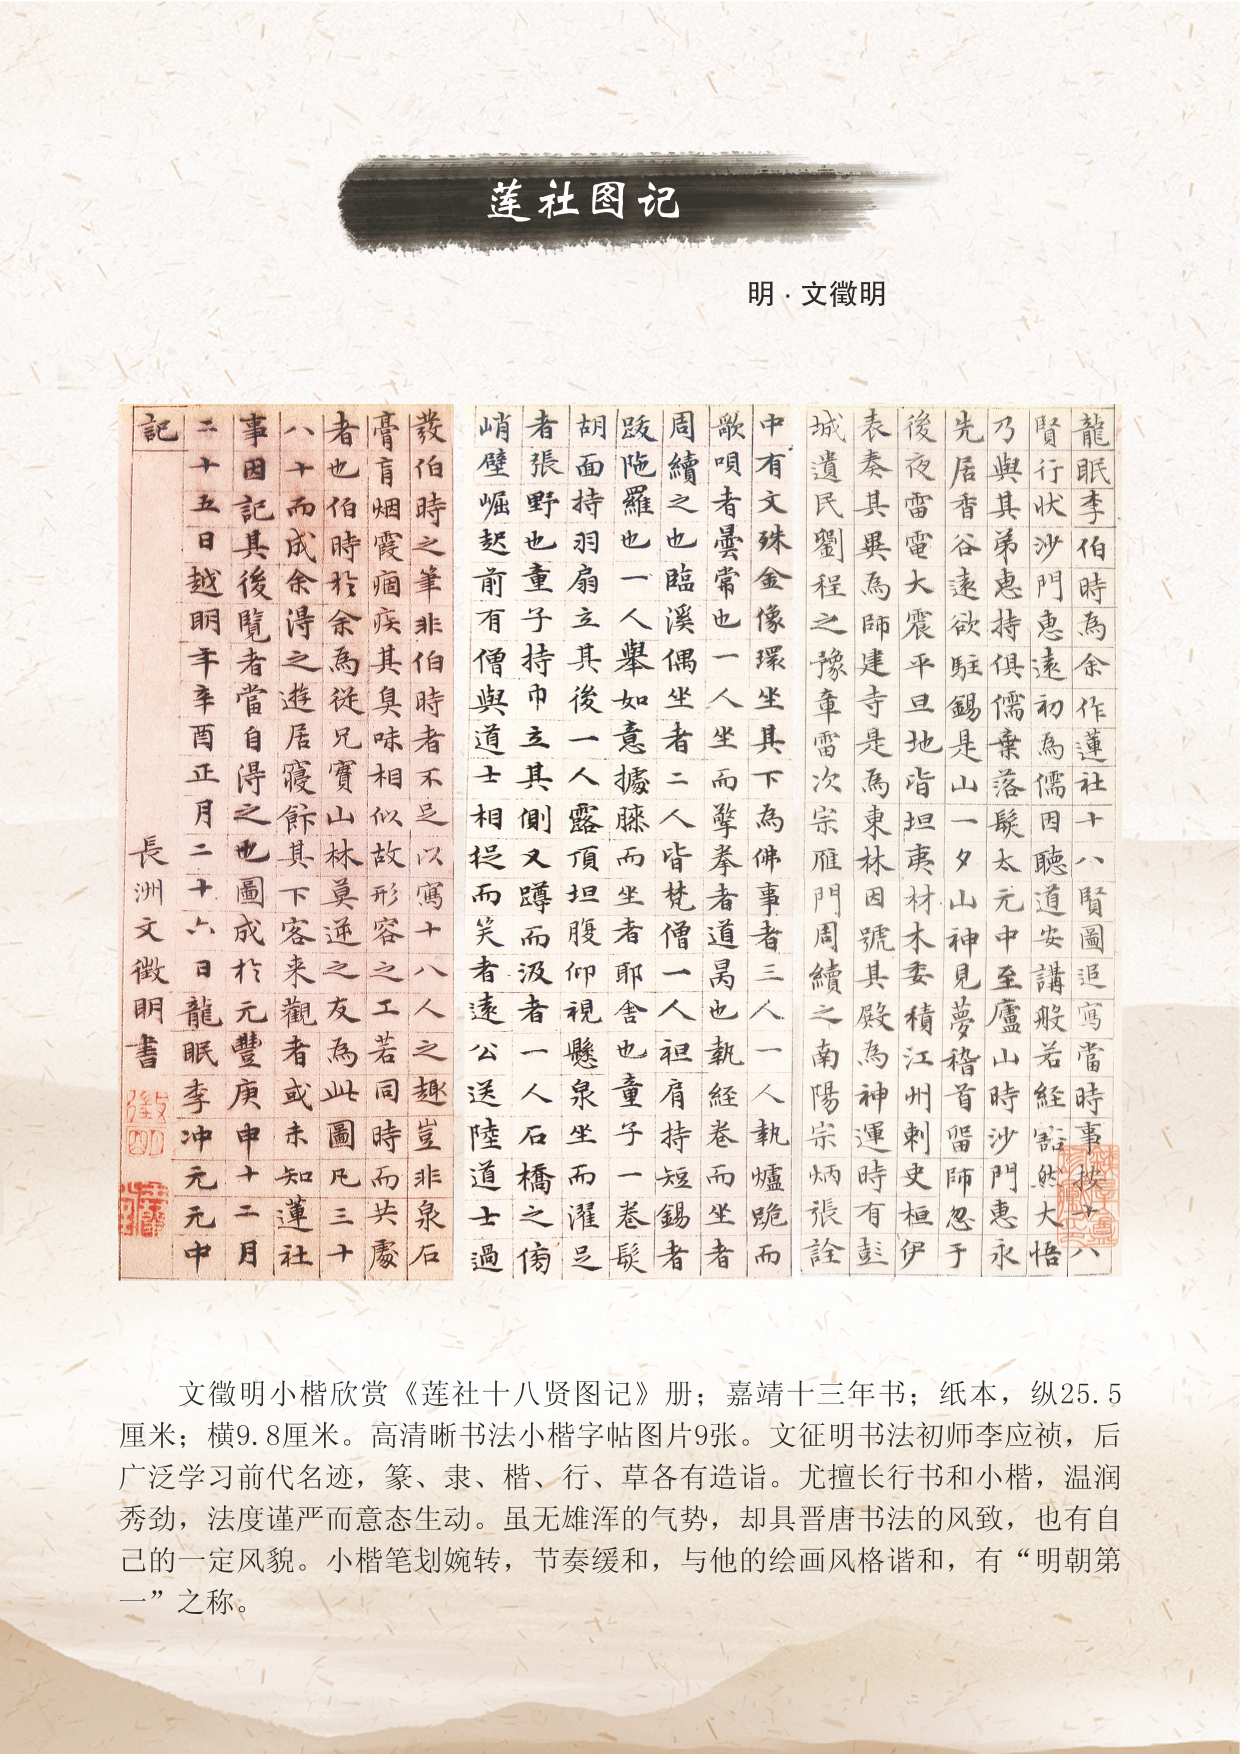 莲社图记
明·文徵明
龍眠李伯時為余作蓮社十八賢圖追寫當時事按十八
賢行狀沙門惠遠初為儒因聽道安講般若經豁然大悟
乃與其弟惠持俱儒棄落髮太元中至廬山時沙門惠永
先居香谷遠欲駐錫是山一夕山神見夢稽首留師忽于
後夜雷電大震平旦地皆坦夷材木委積江州刺史桓伊
表奏其異為師建寺是為東林因號其殿為神運時有彭
城遺民劉程之豫章雷次宗雁門周續之南陽宗炳張詮
中有文殊金像環坐其下為佛事者三人一人執爐跪而
歌唄者曇常也一人坐而擎拳者道昺也執経卷而坐者
周續之也臨溪偶坐者二人皆梵僧一人袒肩持短錫者
跋陁羅也一人舉如意據膝而坐者耶舍也童子一卷髮
胡面持羽扇立其後一人露頂坦腹仰視懸泉坐而濯足
者張野也童子持巾立其側又蹲而汲者一人石橋之傍
峭壁崛起前有僧與道士相捉而笑者遠公送陸道士過
發伯時之筆非伯時者不足以寫十八人之趣豈非泉石
膏肓烟霞痼疾其臭味相似故形容之工若同時而共處
者也伯時於余為從兄寶山林莫逆之友為此圖凡三十
八十而成余得之遊居寢飰其下客来觀者或未知蓮社
事因記其後覽者當自得之也圖成於元豐庚申十二月
二十五日越明年辛酉正月二十六日龍眠李冲元元中
記
長洲文徵明書
文徵明小楷欣赏《莲社十八贤图记》册；嘉靖十三年书；纸本，纵25.5
厘米；横9.8厘米。高清晰书法小楷字帖图片9张。文征明书法初师李应祯，后
广泛学习前代名迹，篆、隶、楷、行、草各有造诣。尤擅长行书和小楷，温润
秀劲，法度谨严而意态生动。虽无雄浑的气势，却具晋唐书法的风致，也有自
己的一定风貌。小楷笔划婉转，节奏缓和，与他的绘画风格谐和，有“明朝第
一”之称。